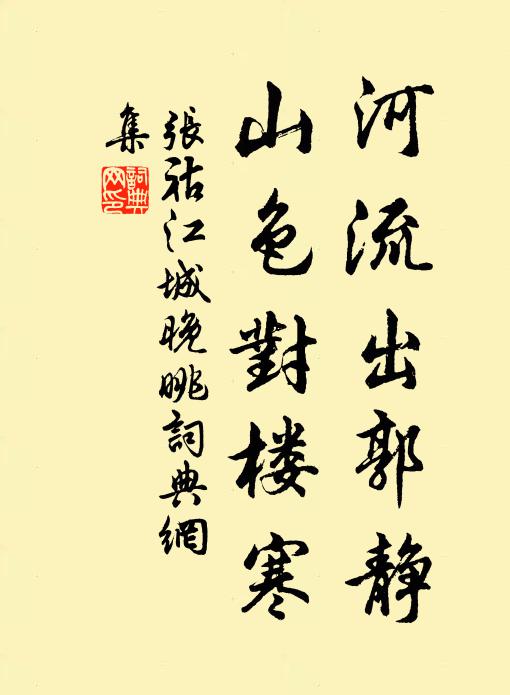 河流出郭静
山色對楼寒
張祜江城晚眺詞典網
集
詞典
网印